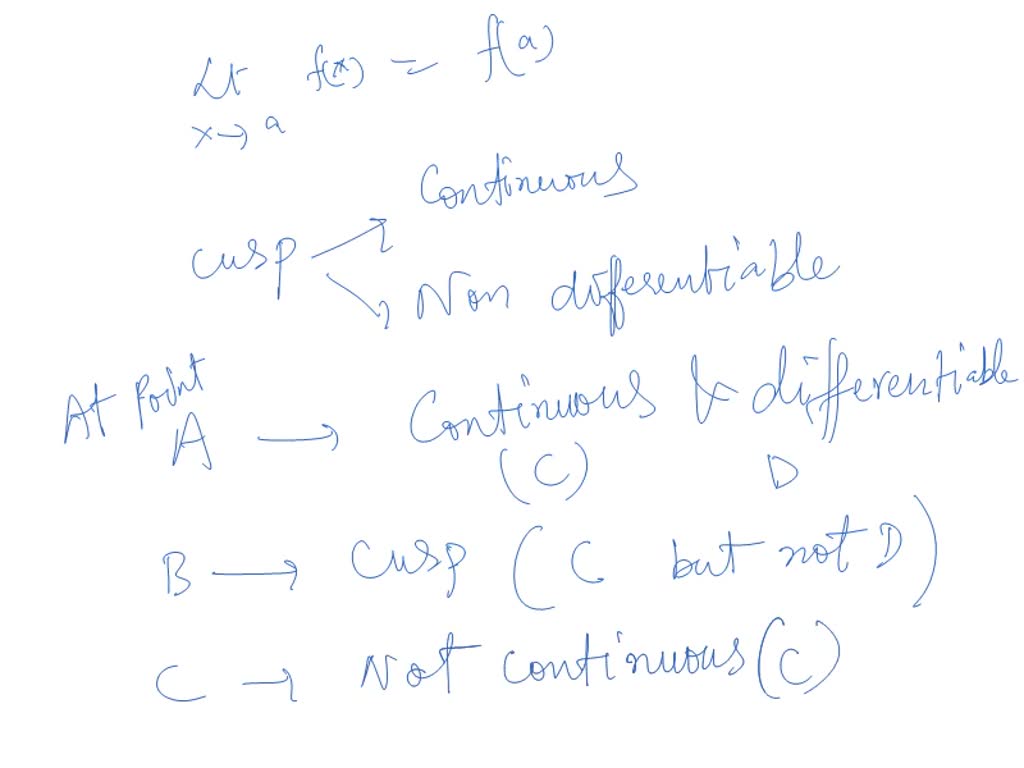 Lt f(x) = f(a)
x→a
Continuous
cusp
Non differentiable
At Point
A → Continuous & differentiable
(C) D
B → Cusp (C but not D)
C → Not continuous (C)